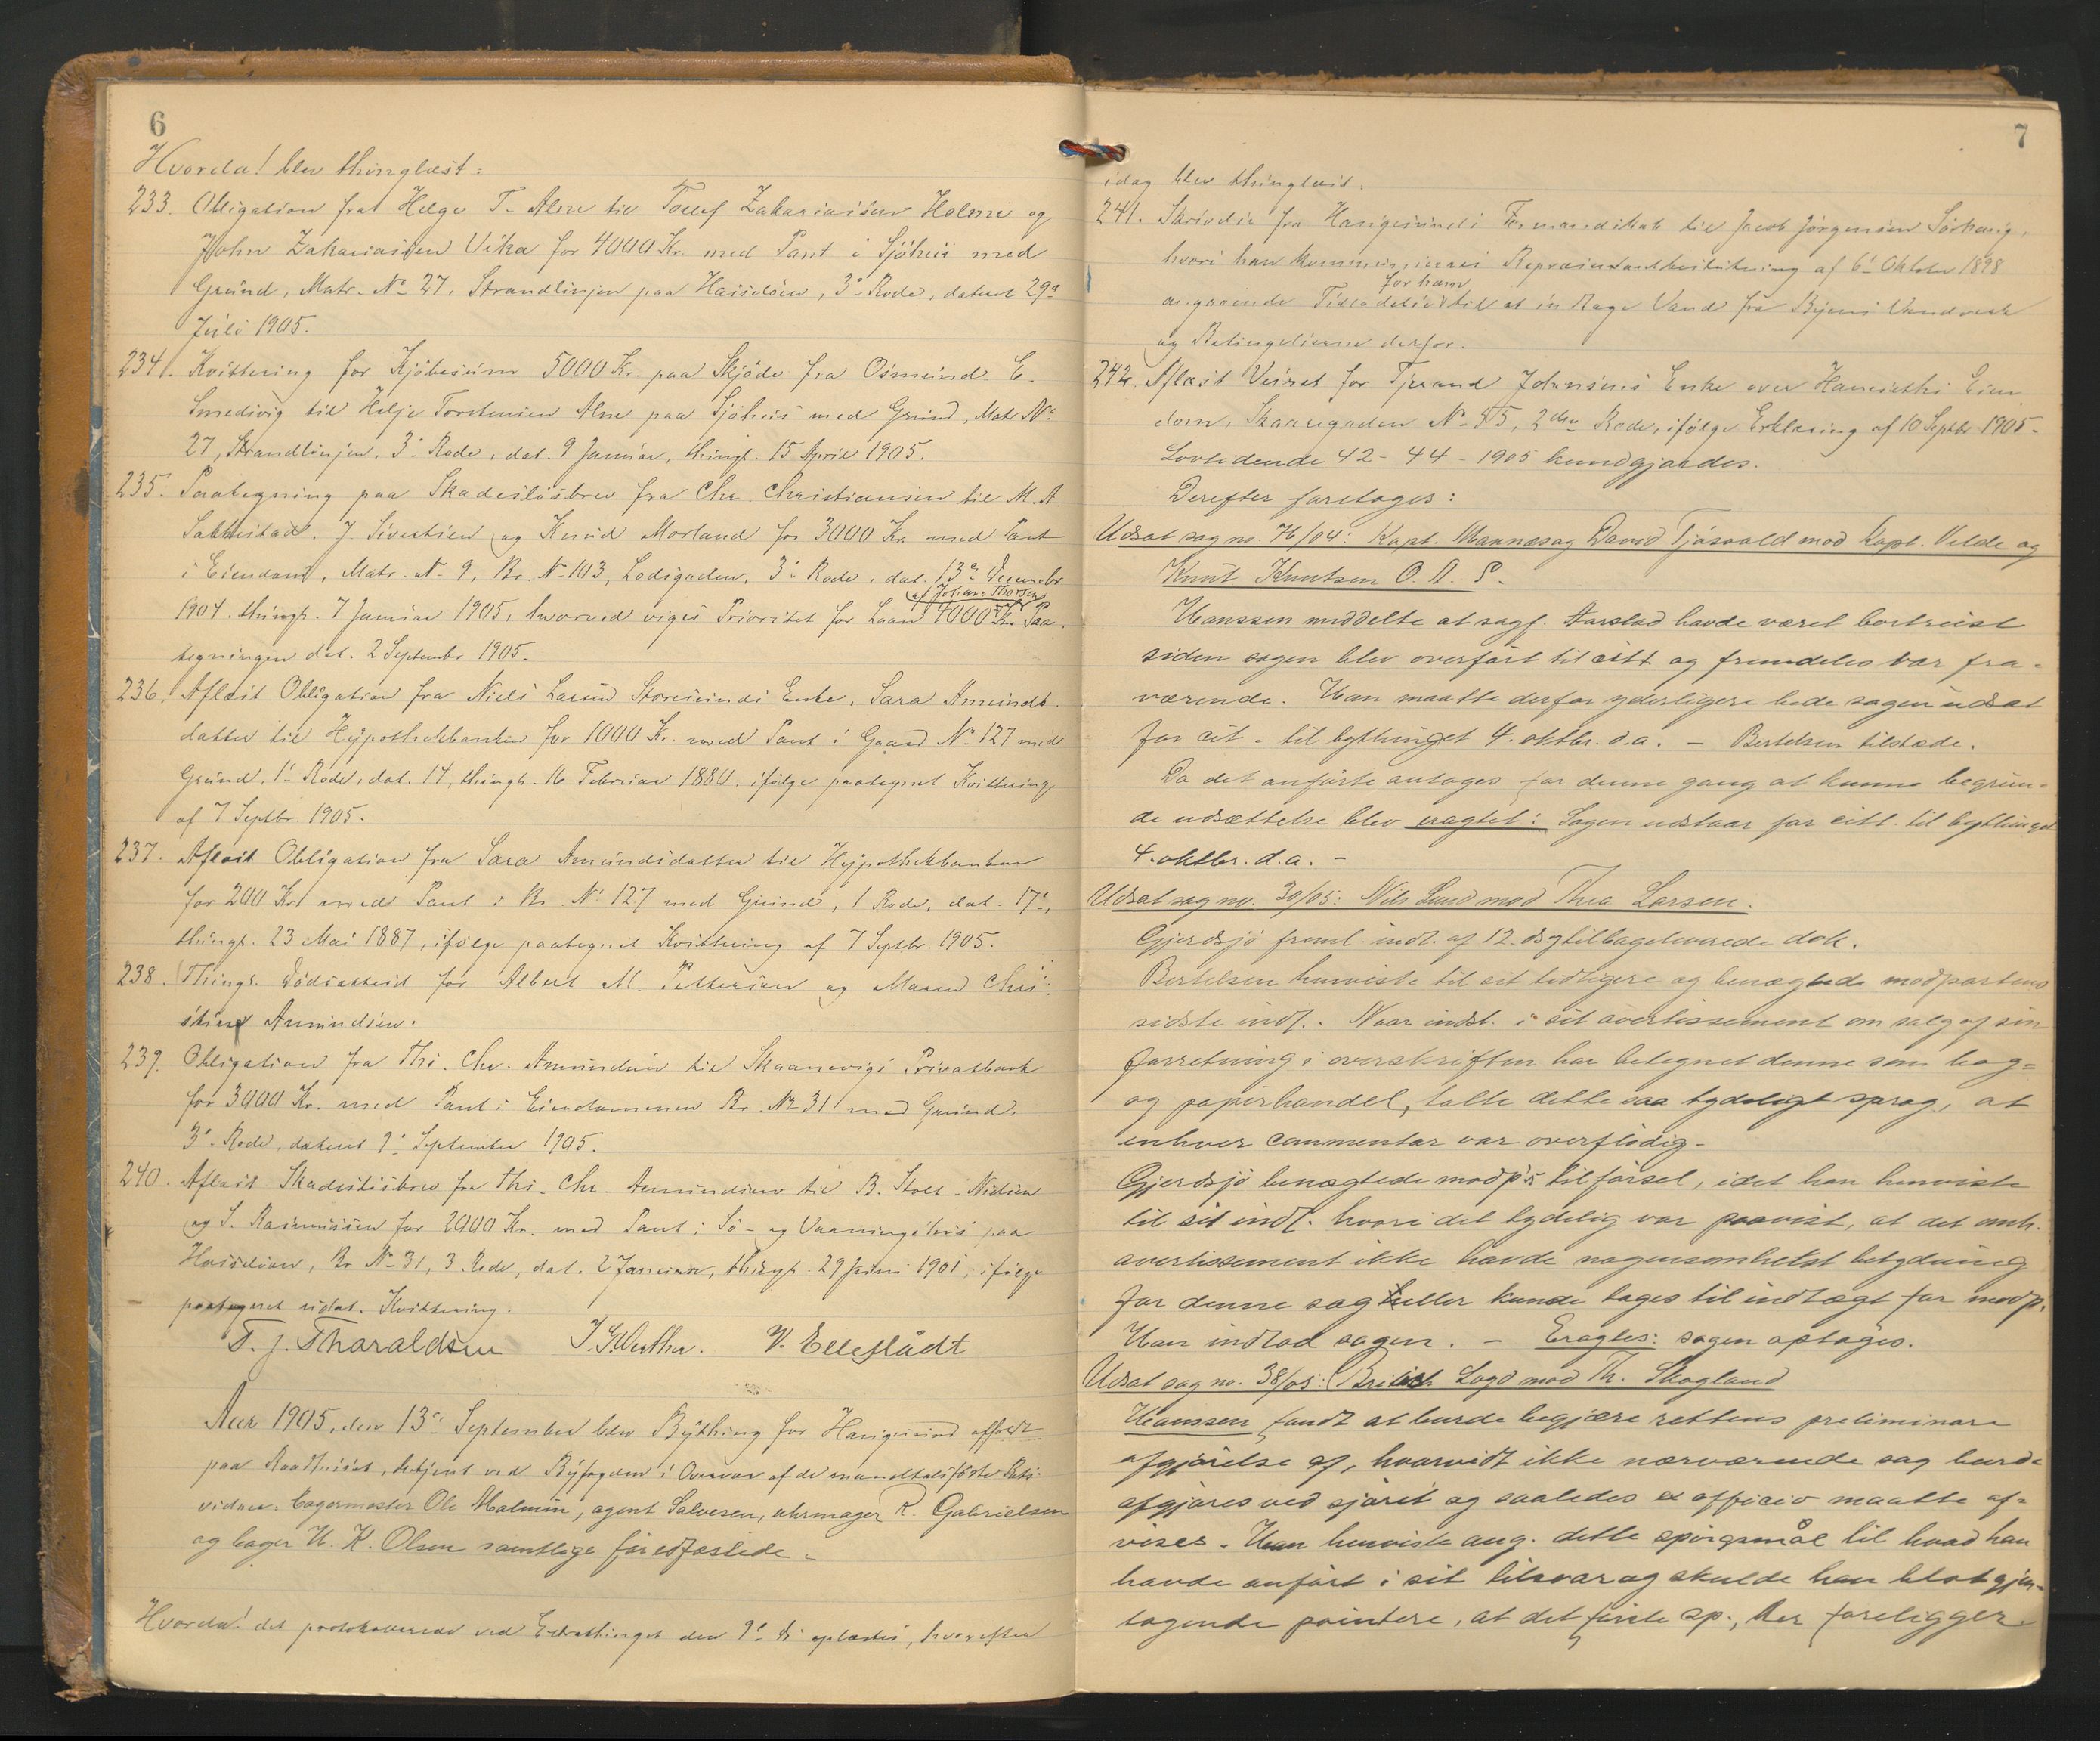 6
Hvorda! blev thinglæst:
233. Obligation fra Helge T. Alne til Tollef Zakariassen Holme og
John Zakariassen Vika for 4000 Kr. med Pant i Sjöhus med
Grund, Matr. No 27, Strandlinjen paa Hasseloen, 3die Rode, dateret 29de
Juli 1905.
234. Kvittering for Kjöbesum 5000 Kr. paa Skjöde fra Osmund E.
Smedsvig til Helje Torstensen Alne paa Sjöhus med Grund, Matr. No
27, Strandlinjen, 3die Rode, dat. 9 Januar, thingl. 15 April 1905.
235. Paategning paa Skadeslösbrev fra Chr. Christiansen til M. A.
J. Sivertsen og Knud Morland for 3000 Kr. med Pant
i Eiendom, Matr. No 9, Br. No 103, Lodsgaden, 3die Rode, dat. 13de Decembr
1904, thingl. 7 Januar 1905, hvorved viges Prioritet for Laan 4000 Kr. Paa-
tegningen dat. 2 September 1905.
236. Aflæst Obligation fra Niels Larsen Storesunds Enke, Sara Amunds-
datter til Hypothekbanken for 1000 Kr. med Pant i Gaard No 127 med
Grund, 1ste Rode, dat. 14, thingl. 16 Februar 1880, ifölge paategnet Kvittering
af 7 Septbr. 1905.
237. Aflæst Obligation fra Sara Amundsdatter til Hypothekbanken
for 200 Kr. med Pant i Br. No 127 med Grund, 1 Rode, dat. 17de,
thingl. 23 Mai 1887, ifölge paategnet Kvittering af 7 Septbr. 1905.
238. Thingl. Dödsattest for Albert M. Pettersen og Maren Chri-
stine Amundsen.
239. Obligation fra Ths. Chr. Amundsen til Skaanevigs Privatbank
for 3000 Kr. med Pant i Eiendommen Br. No 31 med Grund,
3die Rode, dateret 9de September 1905.
240. Aflæst Skadeslösbrev fra Ths. Chr. Amundsen til B. Stolt-Nielsen
og S. Rasmussen for 2000 Kr. med Pant i Sö- og Vaaningshus paa
Hasseloen, Br. No 31, 3 Rode, dat. 2 Januar, thingl. 29 Juni 1901, ifölge
paategnet udat. Kvittering.
T. J. Tharaldsen V. Ellefladt
Aar 1905, den 13de September blev Bything for Haugesund afholdt
paa Raadhuset, betjent ved Byfogden i Overvær af de mandtalsförte Rets-
vidner: bagermester Ole Malmin, agent Salvesen, uhrmager R. Gabrielsen
og bager H. K. Olsen samtlige för edfæstede.
Hvorda! det protokollerede ved Extrathinget den 9de ds oplæstes, hvorefter
7
idag blev thinglæst:
241. Skrivelse fra Haugesunds Formandskab til Jacob Jörgensen Sörhaug,
hvori han kommuniceres Repræsentantbeslutning af 6te Oktober 1898
for ham
angaaende Tilladelse til at indtage Vand fra Byens Vandverk
og Betingelserne derfor.
242. Aflæst Veiret for Tjerand Johnsens Enke over Eien-
dom, Skaaregaden No 55, 2den Rode, ifölge Erklæring af 10 Septbr 1905.
Lovtidende 42-44-1905 kundgjordes.
Derefter foretoges:
Udsat sag no. 76/04: Kapt. Mannes og David Tjösvold mod Kapt. Velde og
Knut Knutsen O. A. S.
Hanssen meddelte at sagf. Aarstad havde været bortreist
siden sagen blev overfört til citt og fremdeles var fra-
værende. Han maatte derfor yderligere bede sagen udsat
for cit. til bythinget 4. oktbr. d.a. — Bertelsen tilstede.
Da det anförte antages for denne gang at kunne begrun-
de udsættelse blev eragtet: Sagen udstaar for citt. til bythinget
4. oktbr. d.a. —
Udsat sag no. 30/05: Nils Lund mod Thea Larsen.
Gjerdsjö freml. indl. af 12. ds og tilbageleverede dok.
Bertelsen henviste til sit tidligere og benægtede modpartens
sidste indl. Naar indst. i sit avertissement om salg af sin
forretning i overskriften har betegnet denne som bog-
og papirhandel, talte dette saa tydeligt sprog, at
enhver commentar var overflödig.
Gjerdsjö benægtede modp's tilförsel, idet han henviste
til sit indl. hvori det tydelig var paavist, at det omh.
avertissement ikke havde nogensomhelst betydning
for denne sag heller kunde tages til indtægt for modp.
Han indlod sagen. — Eragtes: sagen optages.
Udsat sag no. 38/05: British Lagd mod Th. Skogland
Hanssen fandt at burde begjære rettens preliminare
afgjörelse af, hvorvidt ikke nærværende sag burde
afgjöres ved sjöret og saaledes ex officio maatte af-
vises. Han henviste ang. dette spörgsmål til hvad han
havde anfört i sit tilsvar og skulde han blot gjen-
tagende pointere, at det förste sp., her foreligger